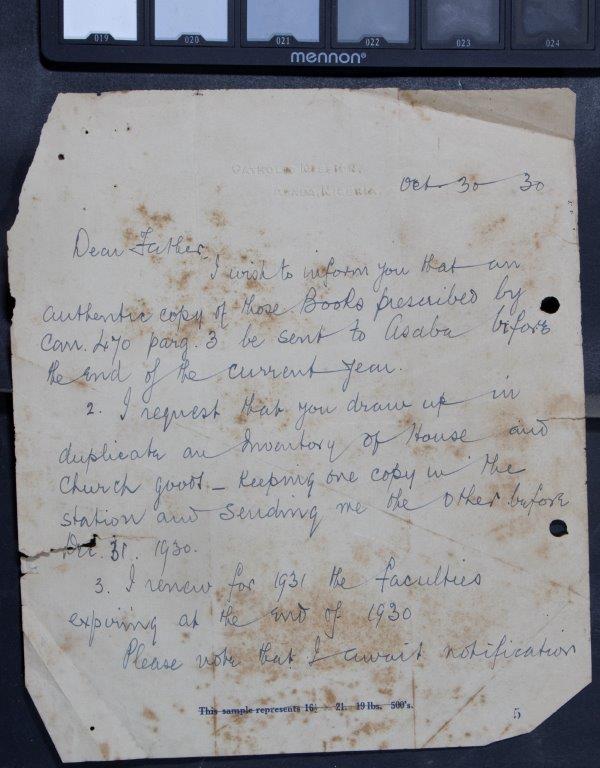 019 020 021 022 023 024
mennon®
CATHOLIC MISSION,
ASABA, NIGERIA.
Oct 30 30
Dear Father,
I wish to inform you that an
authentic copy of those Books prescribed by
Can. 470 parg. 3 be sent to Asaba before
the end of the current year.
2. I request that you draw up in
duplicate an Inventory of House and
Church goods - keeping one copy in the
station and sending me the other before
Dec. 31. 1930.
3. I renew for 1931 the faculties
expiring at the end of 1930
Please note that I await notification
This sample represents 16½ 21. 19 lbs. 500's.
5